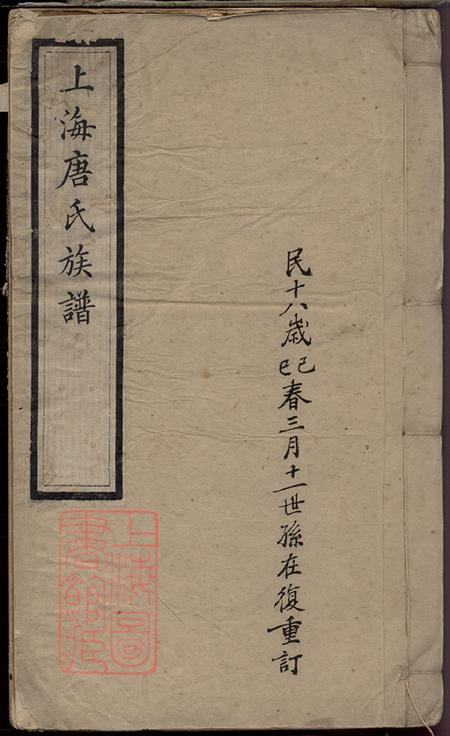 上海唐氏族譜
民十八歲己巳春三月十一世孫在復重訂
上海圖
書館藏